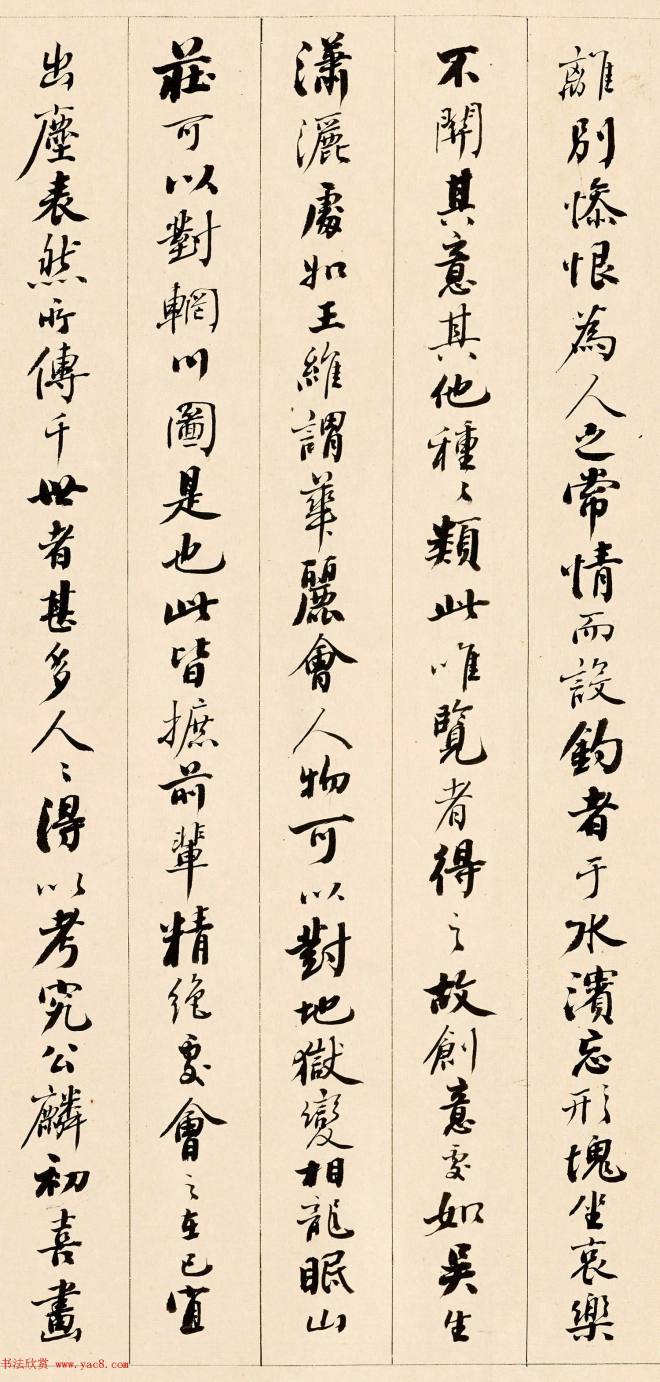 離別慘恨為人之常情而設釣者于水濱忘形塊坐哀樂
不關其意其他種〻類此唯覽者得之故創意處如吳生
瀟灑處如王維謂華麗會人物可以對地獄變相龍眠山
莊可以對輞川圖是也此皆摭前輩精絕處會之在己宜
出塵表然所傳千世者甚多人〻得以考究公麟初喜畫
书法欣赏 www.yac8.com